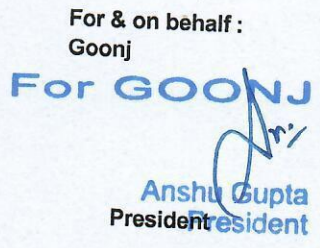 For & on behalf :
Goonj
For GOONJ
Anshu Gupta
President President